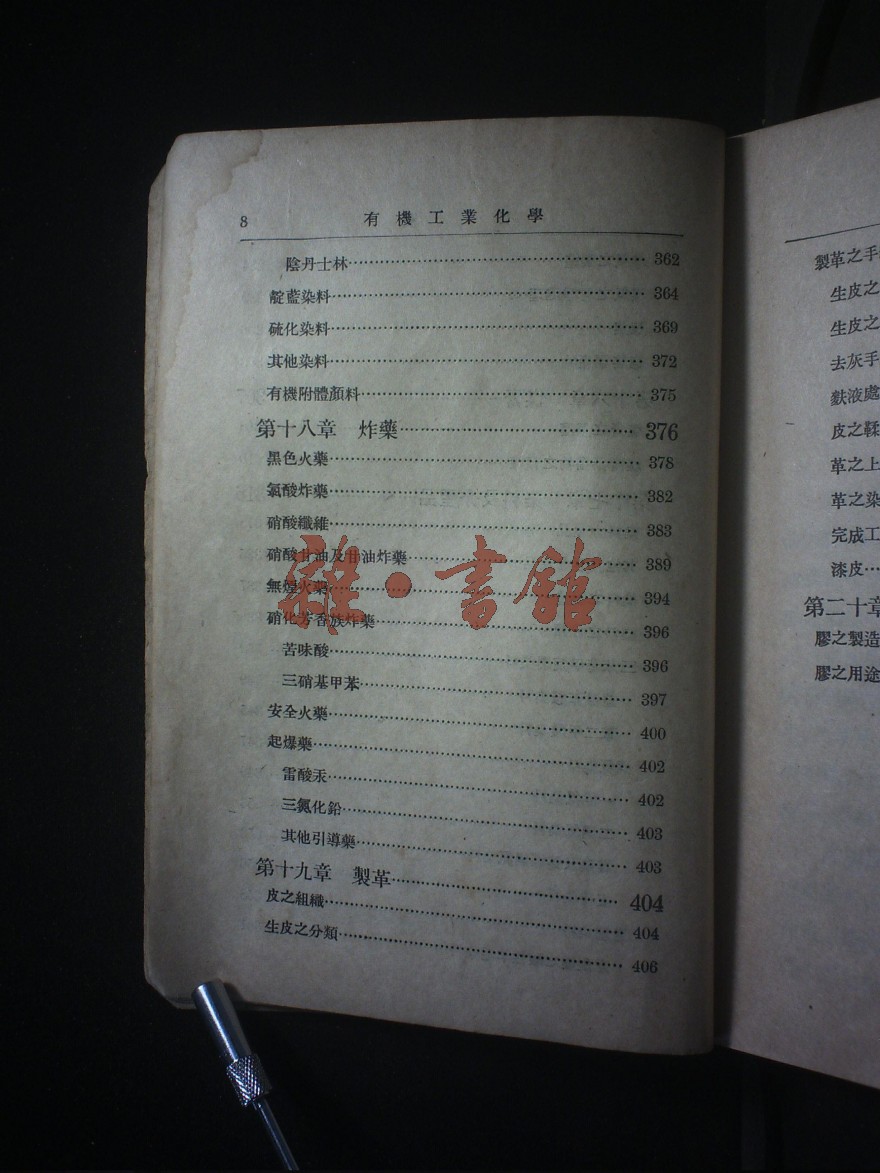 8 有機工業化學
陰丹士林 362
靛藍染料 364
硫化染料 369
其他染料 372
有機附體顏料 375
第十八章 炸藥 376
黑色火藥 378
氯酸炸藥 382
硝酸纖維 383
硝酸甘油及甘油炸藥 389
無煙火藥 394
硝化芳香族炸藥 396
苦味酸 396
三硝基甲苯 397
安全火藥 400
起爆藥 402
雷酸汞 402
三氮化鉛 403
其他引導藥 403
第十九章 製革 404
皮之組織 404
生皮之分類 406
雜·書館
製革之手
生皮之
生皮之
去灰手
麩液處
皮之鞣
革之上
革之染
完成工
漆皮
第二十章
膠之製造
膠之用途